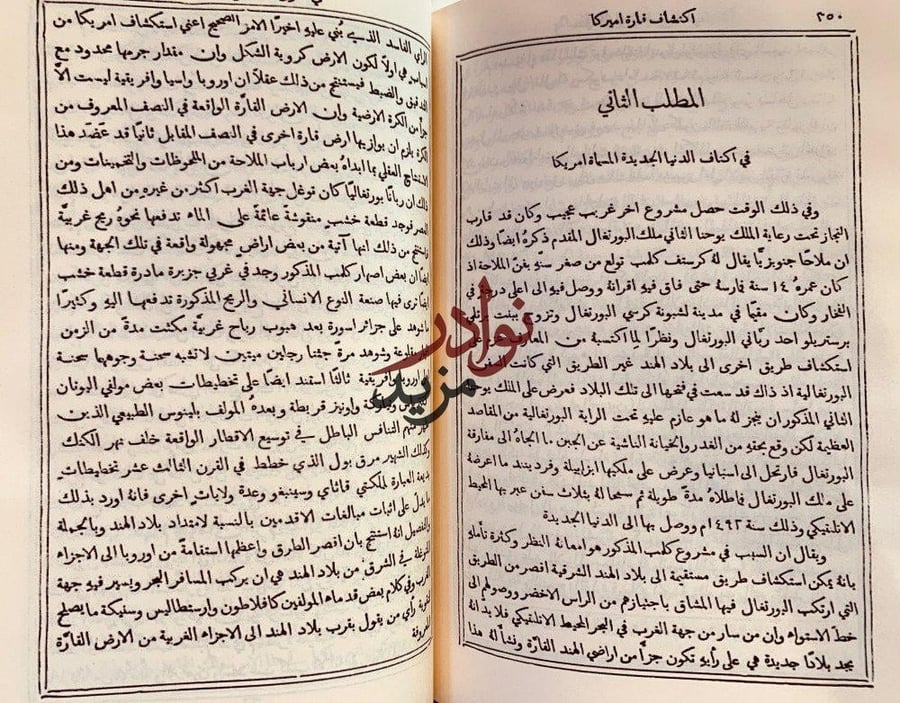 ٢٥٠ اكتشاف قارة اميركا
المطلب الثاني
في اكتاف الدنيا الجديدة المسماة امريكا
وفي ذلك الوقت حصل مشروع اخر غريب عجيب وكان قد قارب
النجاز تحت رعاية الملك يوحنا الثاني ملك البورتغال المقدم ذكرهُ ايضًا وذلك
ان ملاحًا جنويزيًا يقال لهُ كرستف كلمب تولع من صغر سنهِ بفنّ الملاحة اذ
كان عمرهُ ١٤ سنة فارسهُ حتى فاق فيهِ اقرانهُ ووصل فيهِ الى اعلى درجة في
الفخار وكان مقيمًا في مدينة لشبونة كرسي البورتغال وتزوج ببنت
برستريلو احد ربّاني البورتغال ونظرًا لما اكتسبهُ من المعارف عزم على
استكشاف طريق اخرى الى بلاد الهند غير الطريق التي كانت السفن
البورتغالية اذ ذاك قد سعت في فتحها الى تلك البلاد فعرض على الملك يوحنا
الثاني المذكور ان ينجز لهُ ما هو عازم عليهِ تحت الراية البورتغالية من المقاصد
العظيمة لكن وقع بحقهِ من الغدر والخيانة الناشية عن الجبن ما الجاهُ الى مفارقة
البورتغال فارتحل الى اسبانيا وعرض على ملكيها ايزابيلة وفردينند ما اعرضهُ
على ملك البورتغال فاطلاهُ مدةً طويلة ثم سمحا لهُ بثلاث سفن عبر بها المحيط
الاتلنتيكي وذلك سنة ١٤٩٢م ووصل بها الى الدنيا الجديدة
ويقال ان السبب في مشروع كلمب المذكور هو امعانهُ النظر وكثرة تأملهِ
بانهُ يمكن استكشاف طريق مستقيمة الى بلاد الهند الشرقية اقصر من الطريق
التي ارتكب البورتغال فيها المشاق باجتيازهم من الراس الاخضر ووصولهم الى
خط الاستواء وان من سار من جهة الغرب في البحر المحيط الاتلنتيكي فلا بد انهُ
يجد بلادًا جديدة هي على رأيهِ تكون جزءًا من اراضي الهند القارّة ونشأ لهُ هذا
الراي الفاسد الذي بُني عليهِ اخيرًا الامر الصحيح اعني استكشاف امريكا من
اولًا لكون الارض كروية الشكل وان مقدار جرمها محدود مع
التدقيق والضبط فيستنتج من ذلك عقلًا ان اوروبا واسيا وافريقية ليست الا
جزءًا من الكرة الارضية وان الارض القارّة الواقعة في النصف المعروف من
الكرة يلزم ان يوازيها ارض قارة اخرى في النصف المقابل ثانيًا قد عضد هذا
الاستنتاج العقلي بما ابداهُ بعض ارباب الملاحة من الملحوظات والتخمينات ومن
ذلك ان ربّانًا بورتغاليًا كان توغل جهة الغرب اكثر من غيرهِ من اهل ذلك
العصر فوجد قطعة خشب منقوشة عائمة على الماء تدفعها نحوهُ ريح غربيّة
فاستنتج من ذلك انها آتية من بعض اراضٍ مجهولة واقعة في تلك الجهة ومنها
ايضًا ان بعض اصهار كلمب المذكور وجد في غربي جزيرة مادرة قطعة خشب
ايضًا نرى فيها صنعة النوع الانساني والريح المذكورة تدفعها اليهِ وكثيرًا
ما شوهد على جزائر اسورة بعد هبوب رياح غربيّة مكثت مدة من الزمن
وشوهد مرةً جثتا رجلين ميتين لا تشبه سحنة وجوهها سحنة
اوروبا وافريقية ثالثًا استند ايضًا على تخطيطات بعض مولفي اليونان
واونيز قريطة وبعدهُ المولف بلينوس الطبيعي الذين
التنافس الباطل في توسيع الاقطار الواقعة خلف نهر الكنك
وكذلك الشهير مرق بول الذي خطط في القرن الثالث عشر تخطيطات
بديعة العبارة لمملكتي قاتاي وسيبنغو وعدة ولايات اخرى فانهُ اورد بذلك
ما يدل على اثبات مبالغات الاقدمين بالنسبة لامتداد بلاد الهند وبالجملة
والتفصيل انهُ استنتج بان اقصر الطرق واعظمها استقامة من اوروبا الى الاجزاء
في الشرق من بلاد الهند هي ان يركب المسافر البحر ويسير فيهِ جهة
الغرب وفي كلام بعض قدماء المولفين كافلاطون وارستطاليس وسنيكة ما يصلح
لتقوية رأي من يقول بقرب بلاد الهند الى الاجزاء الغربية من الارض القارّة
المعروفة
نوادر
مزيد